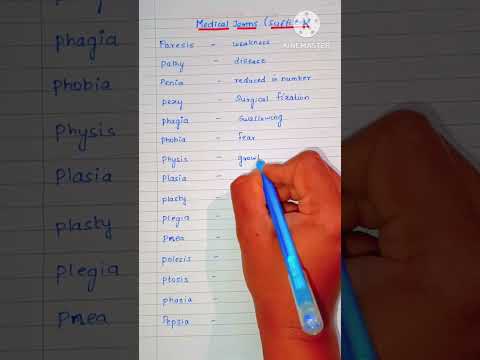 Phagia
Phobia
Physis
Plasia
plasty
plegia
Pnea
Medical Terms (Suffi
K
KINEMASTER
Paresis - weakness
Pathy - disease
Penia - reduced in number
pexy - Surgical fixation
phagia - Swallowing
Phobia - fear
Physis - growt
Plasia -
plasty
plegia -
Pnea -
poiesis -
ptosis -
phasia -
Pepsia -